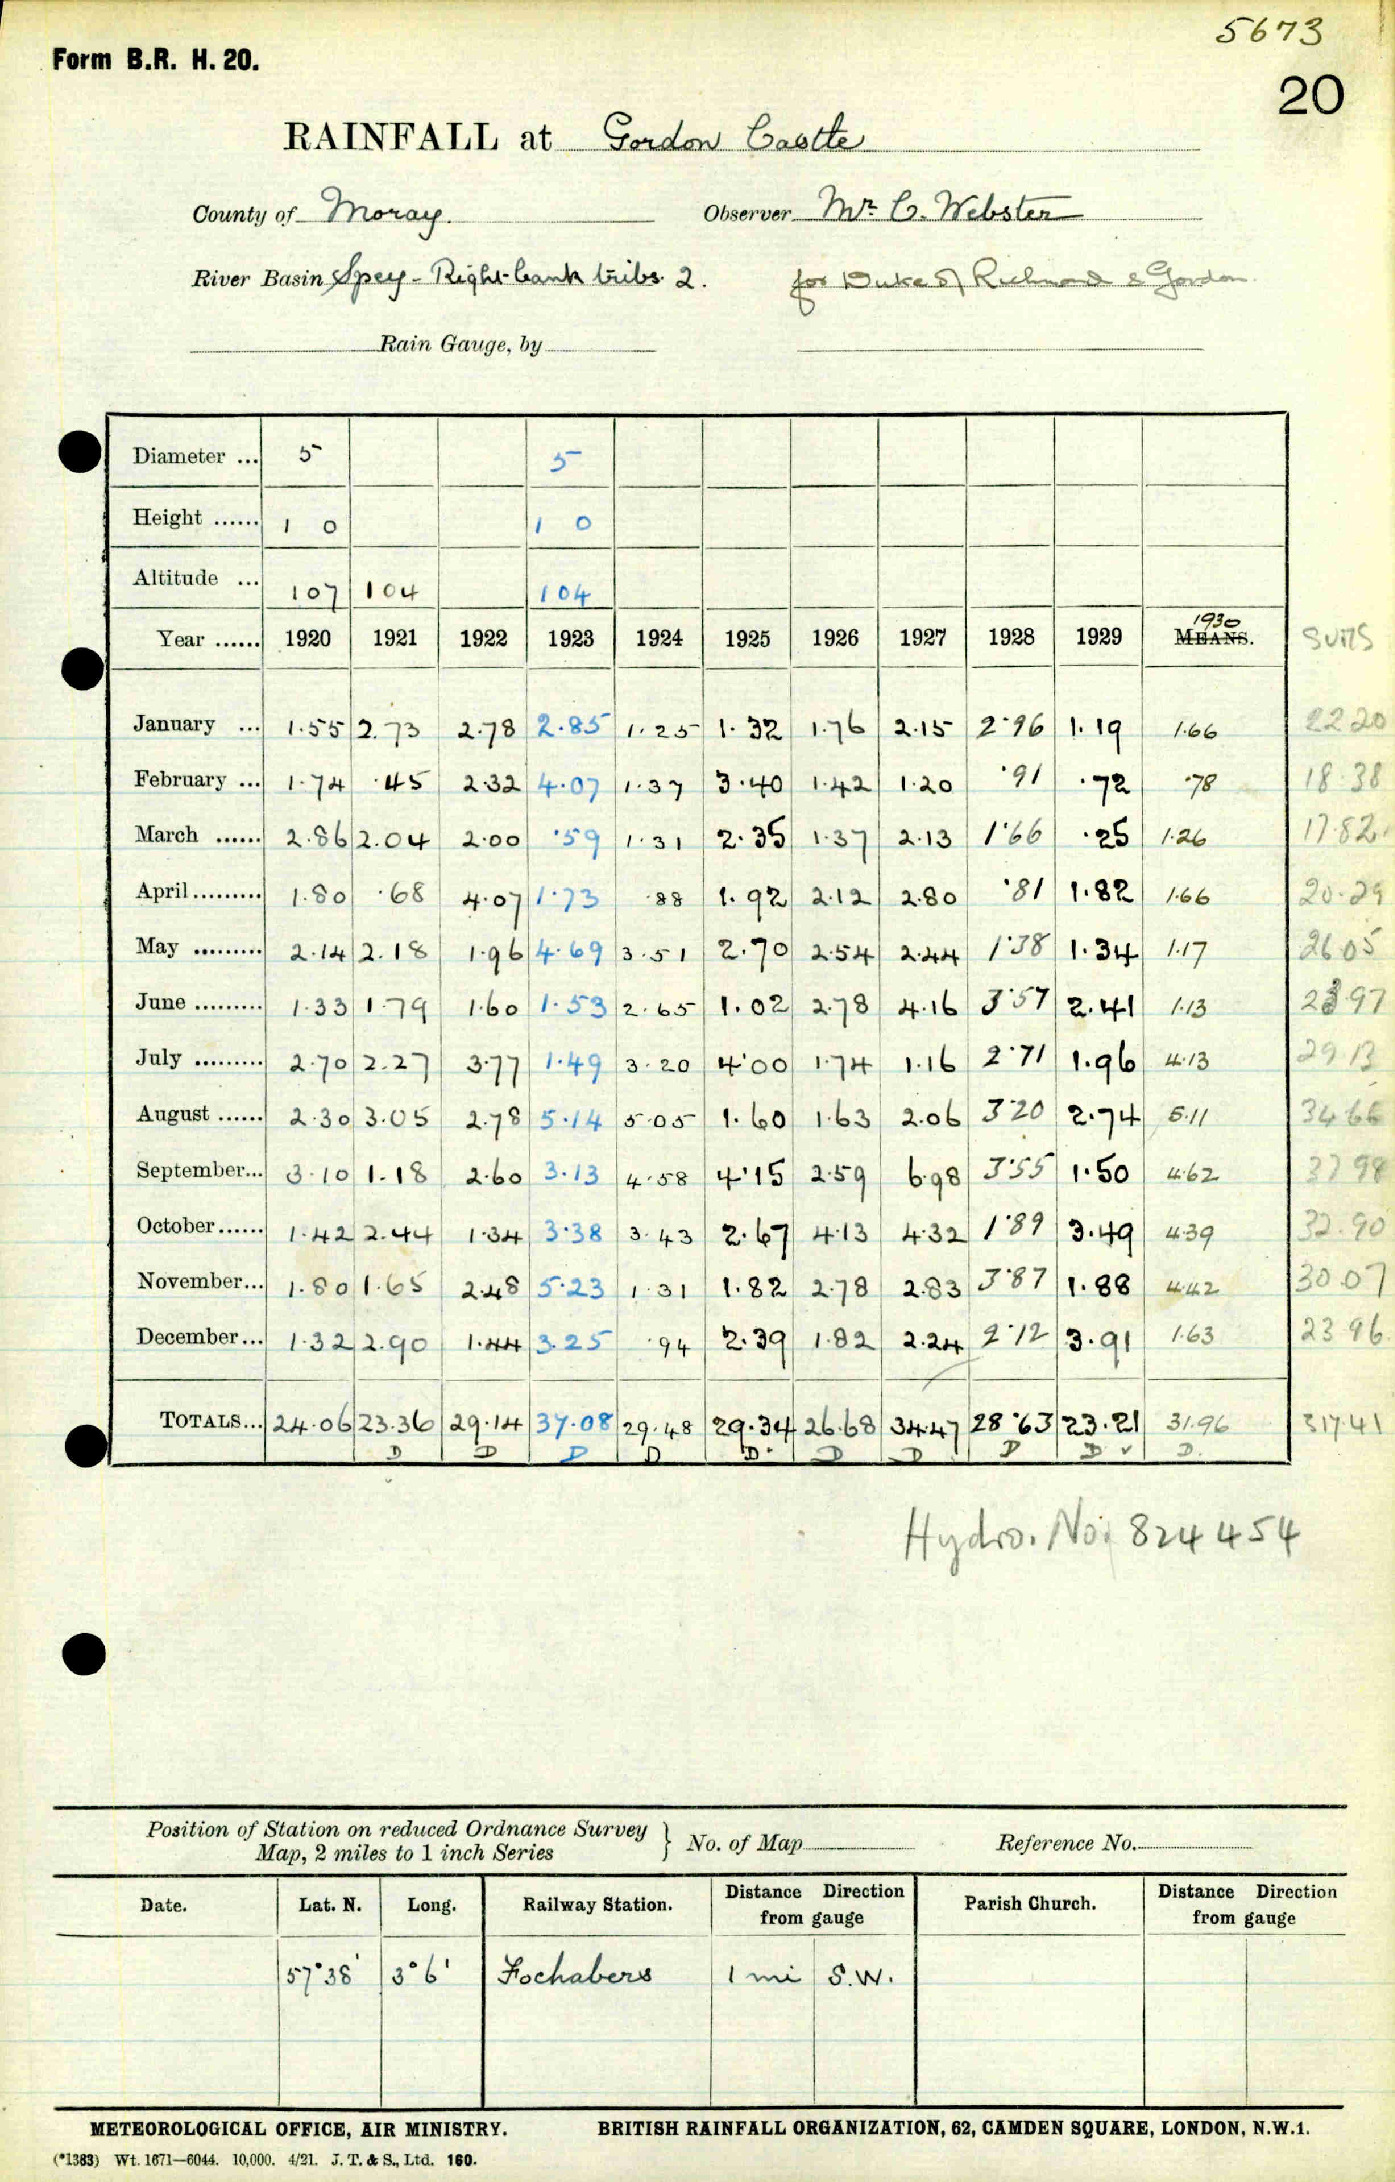 5673
Form B.R. H. 20.
20
RAINFALL at Gordon Castle
County of Moray. Observer Mr. C. Webster
River Basin Spey - Right bank tribs. 2. for Duke of Richmond & Gordon
Rain Gauge, by
Diameter ... 5 5
Height ...... 1 0 1 0
Altitude ... 107 104 104
1930
Year ...... 1920 1921 1922 1923 1924 1925 1926 1927 1928 1929 MEANS. SUMS
January ... 1.55 2.73 2.78 2.85 1.25 1.32 1.76 2.15 2.96 1.19 1.66 22.20
February ... 1.74 .45 2.32 4.07 1.37 3.40 1.42 1.20 .91 .72 .78 18.38
March ...... 2.86 2.04 2.00 .59 1.31 2.35 1.37 2.13 1.66 .25 1.26 17.82
April......... 1.80 .68 4.07 1.73 .88 1.92 2.12 2.80 .81 1.82 1.66 20.29
May ......... 2.14 2.18 1.96 4.69 3.51 2.70 2.54 2.44 1.38 1.34 1.17 26.05
June ......... 1.33 1.79 1.60 1.53 2.65 1.02 2.78 4.16 3.57 2.41 1.13 23.97
July ......... 2.70 2.27 3.77 1.49 3.20 4.00 1.74 1.16 2.71 1.96 4.13 29.13
August ...... 2.30 3.05 2.78 5.14 5.05 1.60 1.63 2.06 3.20 2.74 5.11 34.66
September... 3.10 1.18 2.60 3.13 4.58 4.15 2.59 6.98 3.55 1.50 4.62 37.98
October...... 1.42 2.44 1.34 3.38 3.43 2.67 4.13 4.32 1.89 3.49 4.39 32.90
November... 1.80 1.65 2.48 5.23 1.31 1.82 2.78 2.83 3.87 1.88 4.42 30.07
December... 1.32 2.90 1.44 3.25 .94 2.39 1.82 2.24 2.12 3.91 1.63 23.96
TOTALS... 24.06 23.36 29.14 37.08 29.48 29.34 26.68 34.47 28.63 23.21 31.96 317.41
D D D D D. D D D D ✓ D.
Hydro. No: 824454
Position of Station on reduced Ordnance Survey
Map, 2 miles to 1 inch Series } No. of Map Reference No.
Date. Lat. N. Long. Railway Station. Distance Direction from gauge Parish Church. Distance Direction from gauge
57°38' 3°6' Fochabers 1 mi S.W.
METEOROLOGICAL OFFICE, AIR MINISTRY. BRITISH RAINFALL ORGANIZATION, 62, CAMDEN SQUARE, LONDON, N.W.1.
(*1383) Wt. 1671—6044. 10,000. 4/21. J. T. & S., Ltd. 160.